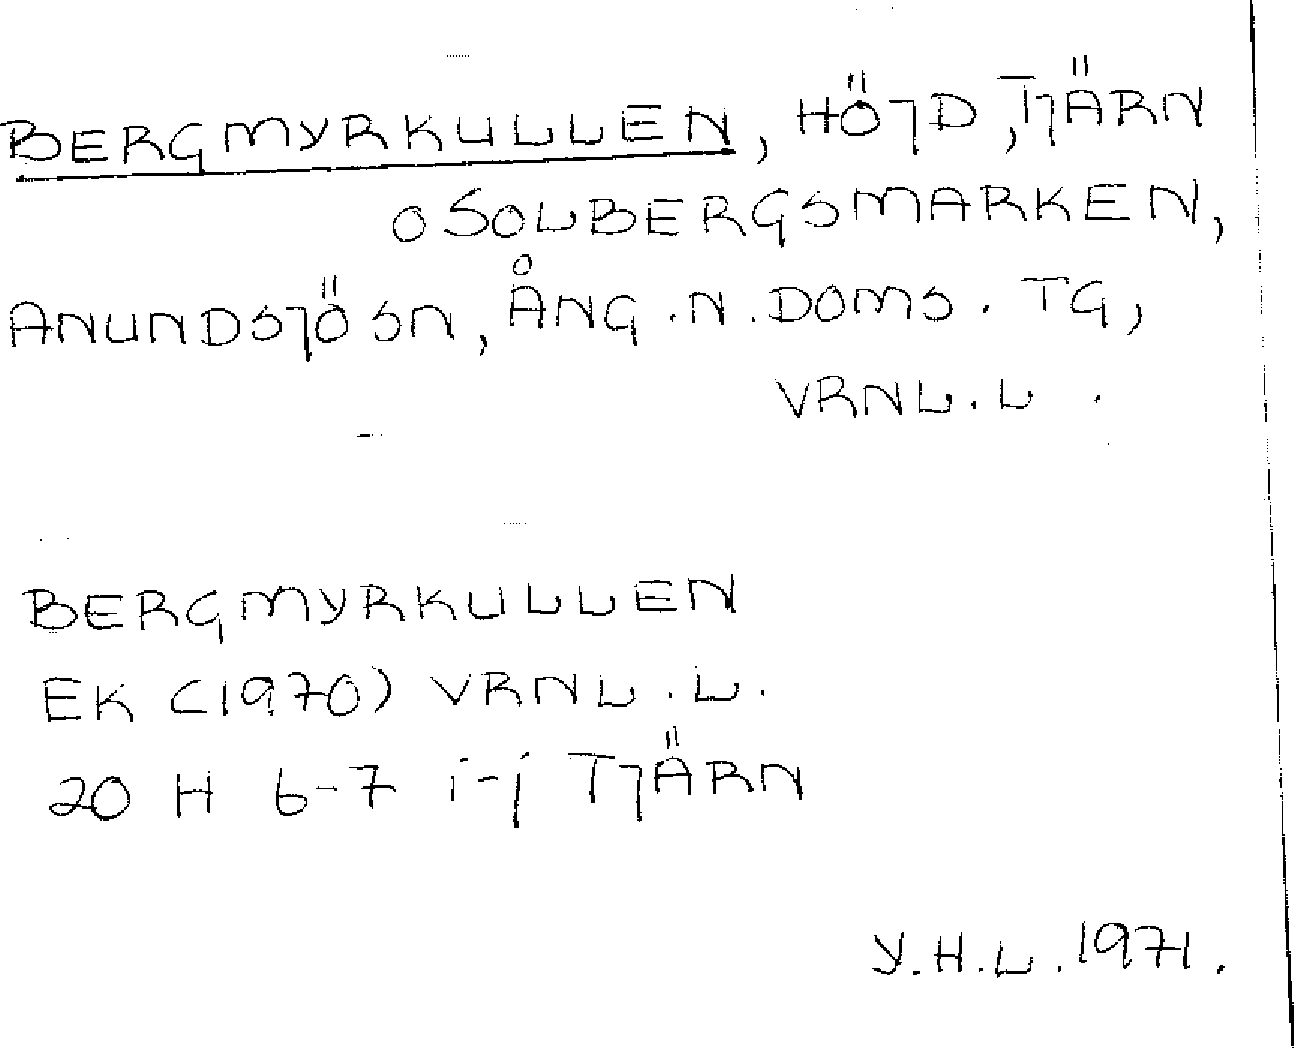 BERGMYRKULLEN, HÖJD, TJÄRN
O SOLBERGSMARKEN,
ANUNDSJÖ SN, ÅNG. N. DOMS. TG,
VRNL. L.
BERGMYRKULLEN
EK (1970) VRNL. L.
20 H 6-7 i-j TJÄRN
Y. H. L. 1971.